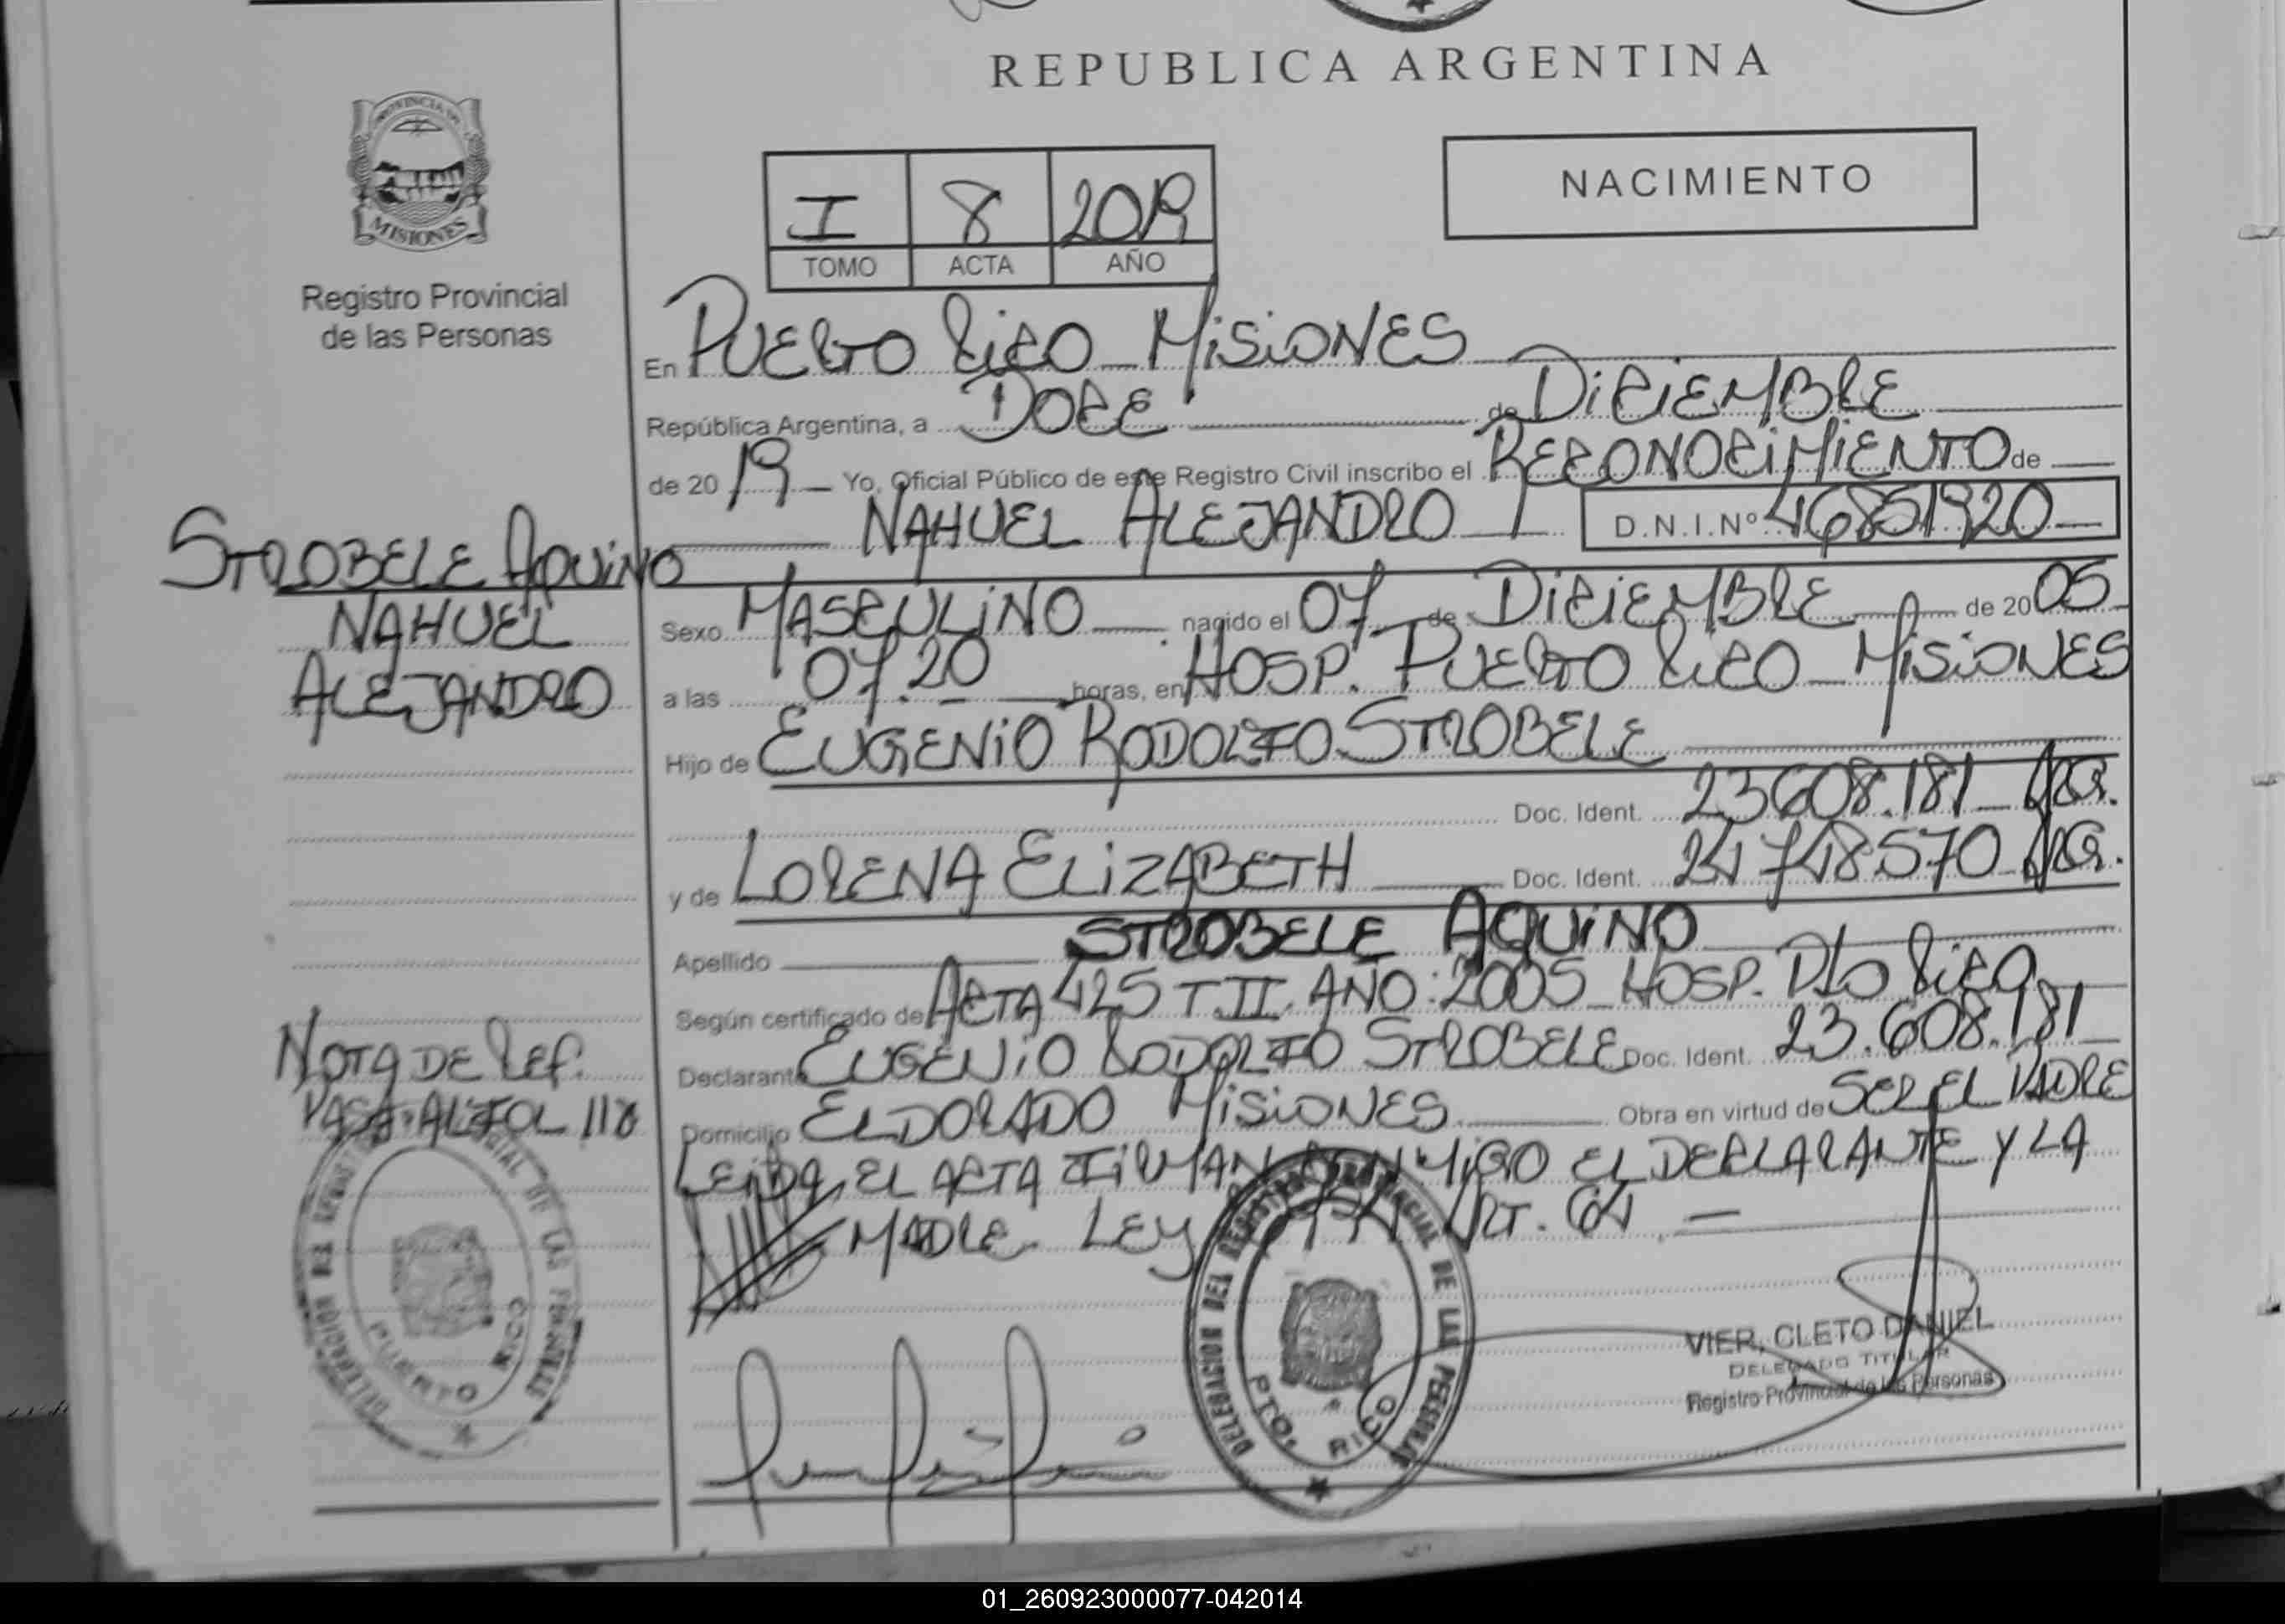 REPUBLICA ARGENTINA
PROVINCIA DE
MISIONES
Registro Provincial
de las Personas
NACIMIENTO
I 8 2019
TOMO ACTA AÑO
En PUERTO RICO _ MISIONES
República Argentina, a DOCE de DICIEMBRE
de 20 19 _ Yo, Oficial Público de este Registro Civil inscribo el RECONOCIMIENTO de
NAHUEL ALEJANDRO D.N.I.Nº 46851920
STROBELE AQUINO
NAHUEL
ALEJANDRO
Sexo MASCULINO nacido el 07 de DICIEMBRE de 20 05
a las 07.20 horas, en HOSP. PUERTO RICO _ MISIONES
Hijo de EUGENIO RODOLFO STROBELE
Doc. Ident. 23608.181 _ ARG.
y de LORENA ELIZABETH Doc. Ident. 24748570 _ ARG.
Apellido STROBELE AQUINO
Según certificado de ACTA 425 T.II. AÑO: 2005 _ HOSP. PTO RICO
Declarante EUGENIO RODOLFO STROBELE Doc. Ident. 23.608.181
Domicilio ELDORADO MISIONES Obra en virtud de SER EL PADRE
LEIDA EL ACTA FIRMAN CONMIGO EL DECLARANTE Y LA
MADRE. LEY ART. 64
NOTA DE REF.
DELEGACION DEL REGISTRO PROVINCIAL DE LAS PERSONAS
PUERTO RICO
DELEGACION DEL REGISTRO PROVINCIAL DE LAS PERSONAS
PTO. RICO
VIER, CLETO DANIEL
DELEGADO TITULAR
Registro Provincial de las Personas
01_260923000077-042014